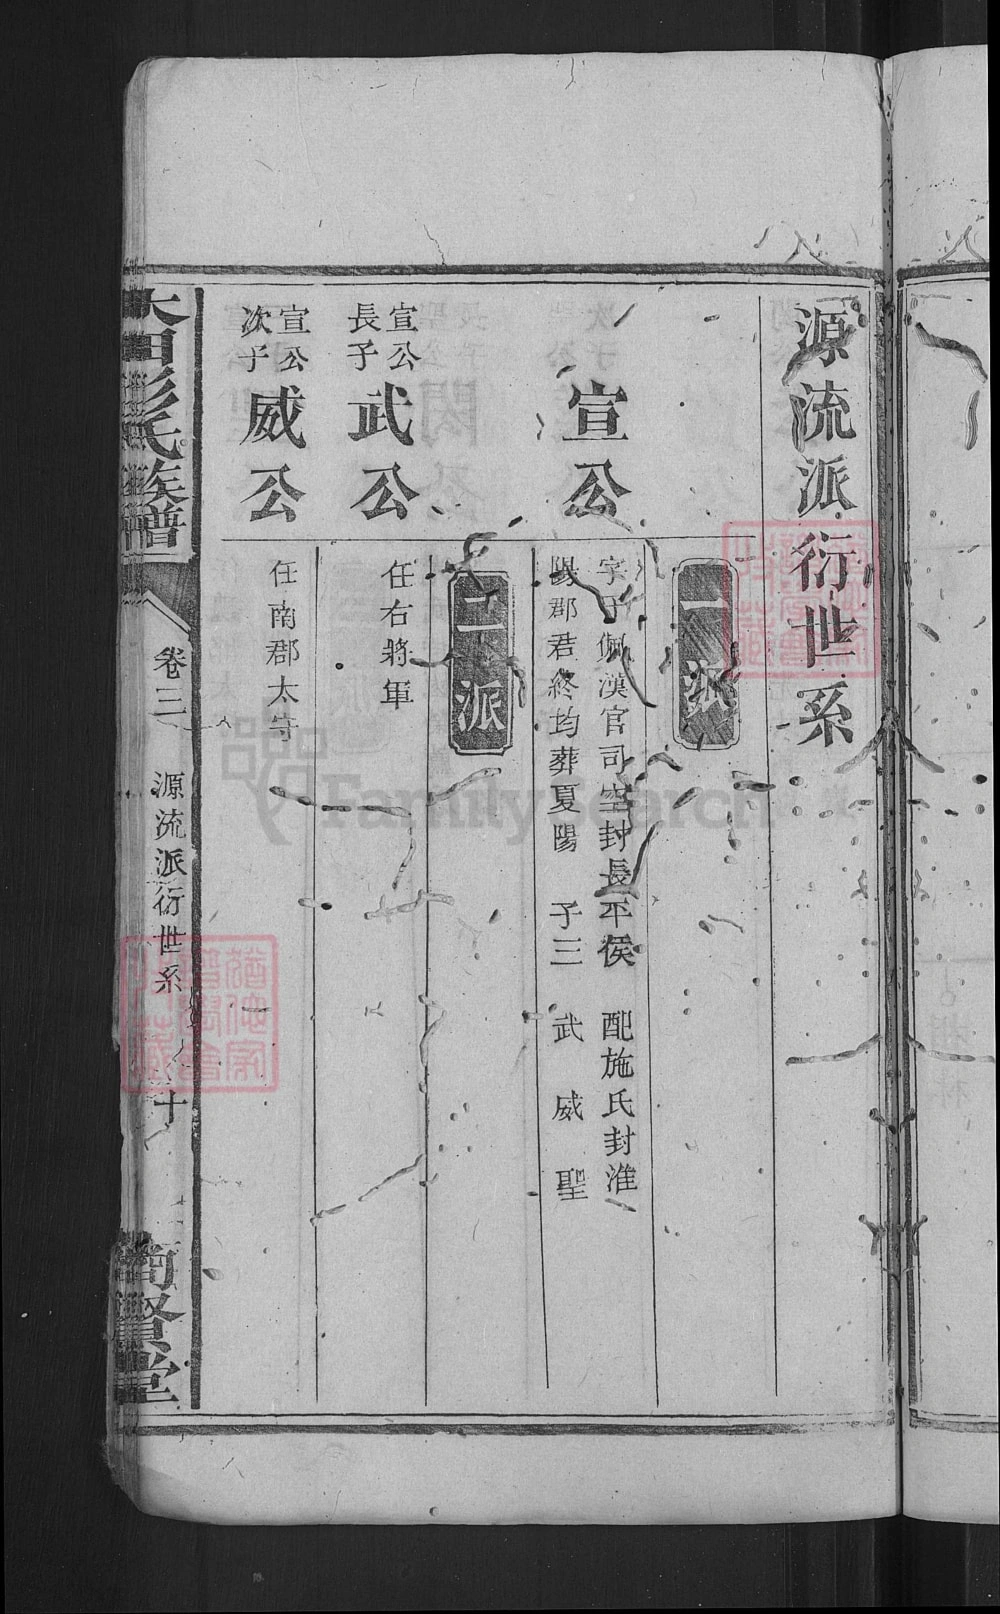 源流派衍世系
一派
宣公
字子佩漢官司空封長平侯 配施氏封淮
陽郡君終均葬夏陽 子三 武 威 聖
二派
宣公
長子
武公
任右將軍
宣公
次子
威公
任南郡太守
大田彭氏族譜
卷三 源流派衍世系 十
尚賢堂
FamilySearch